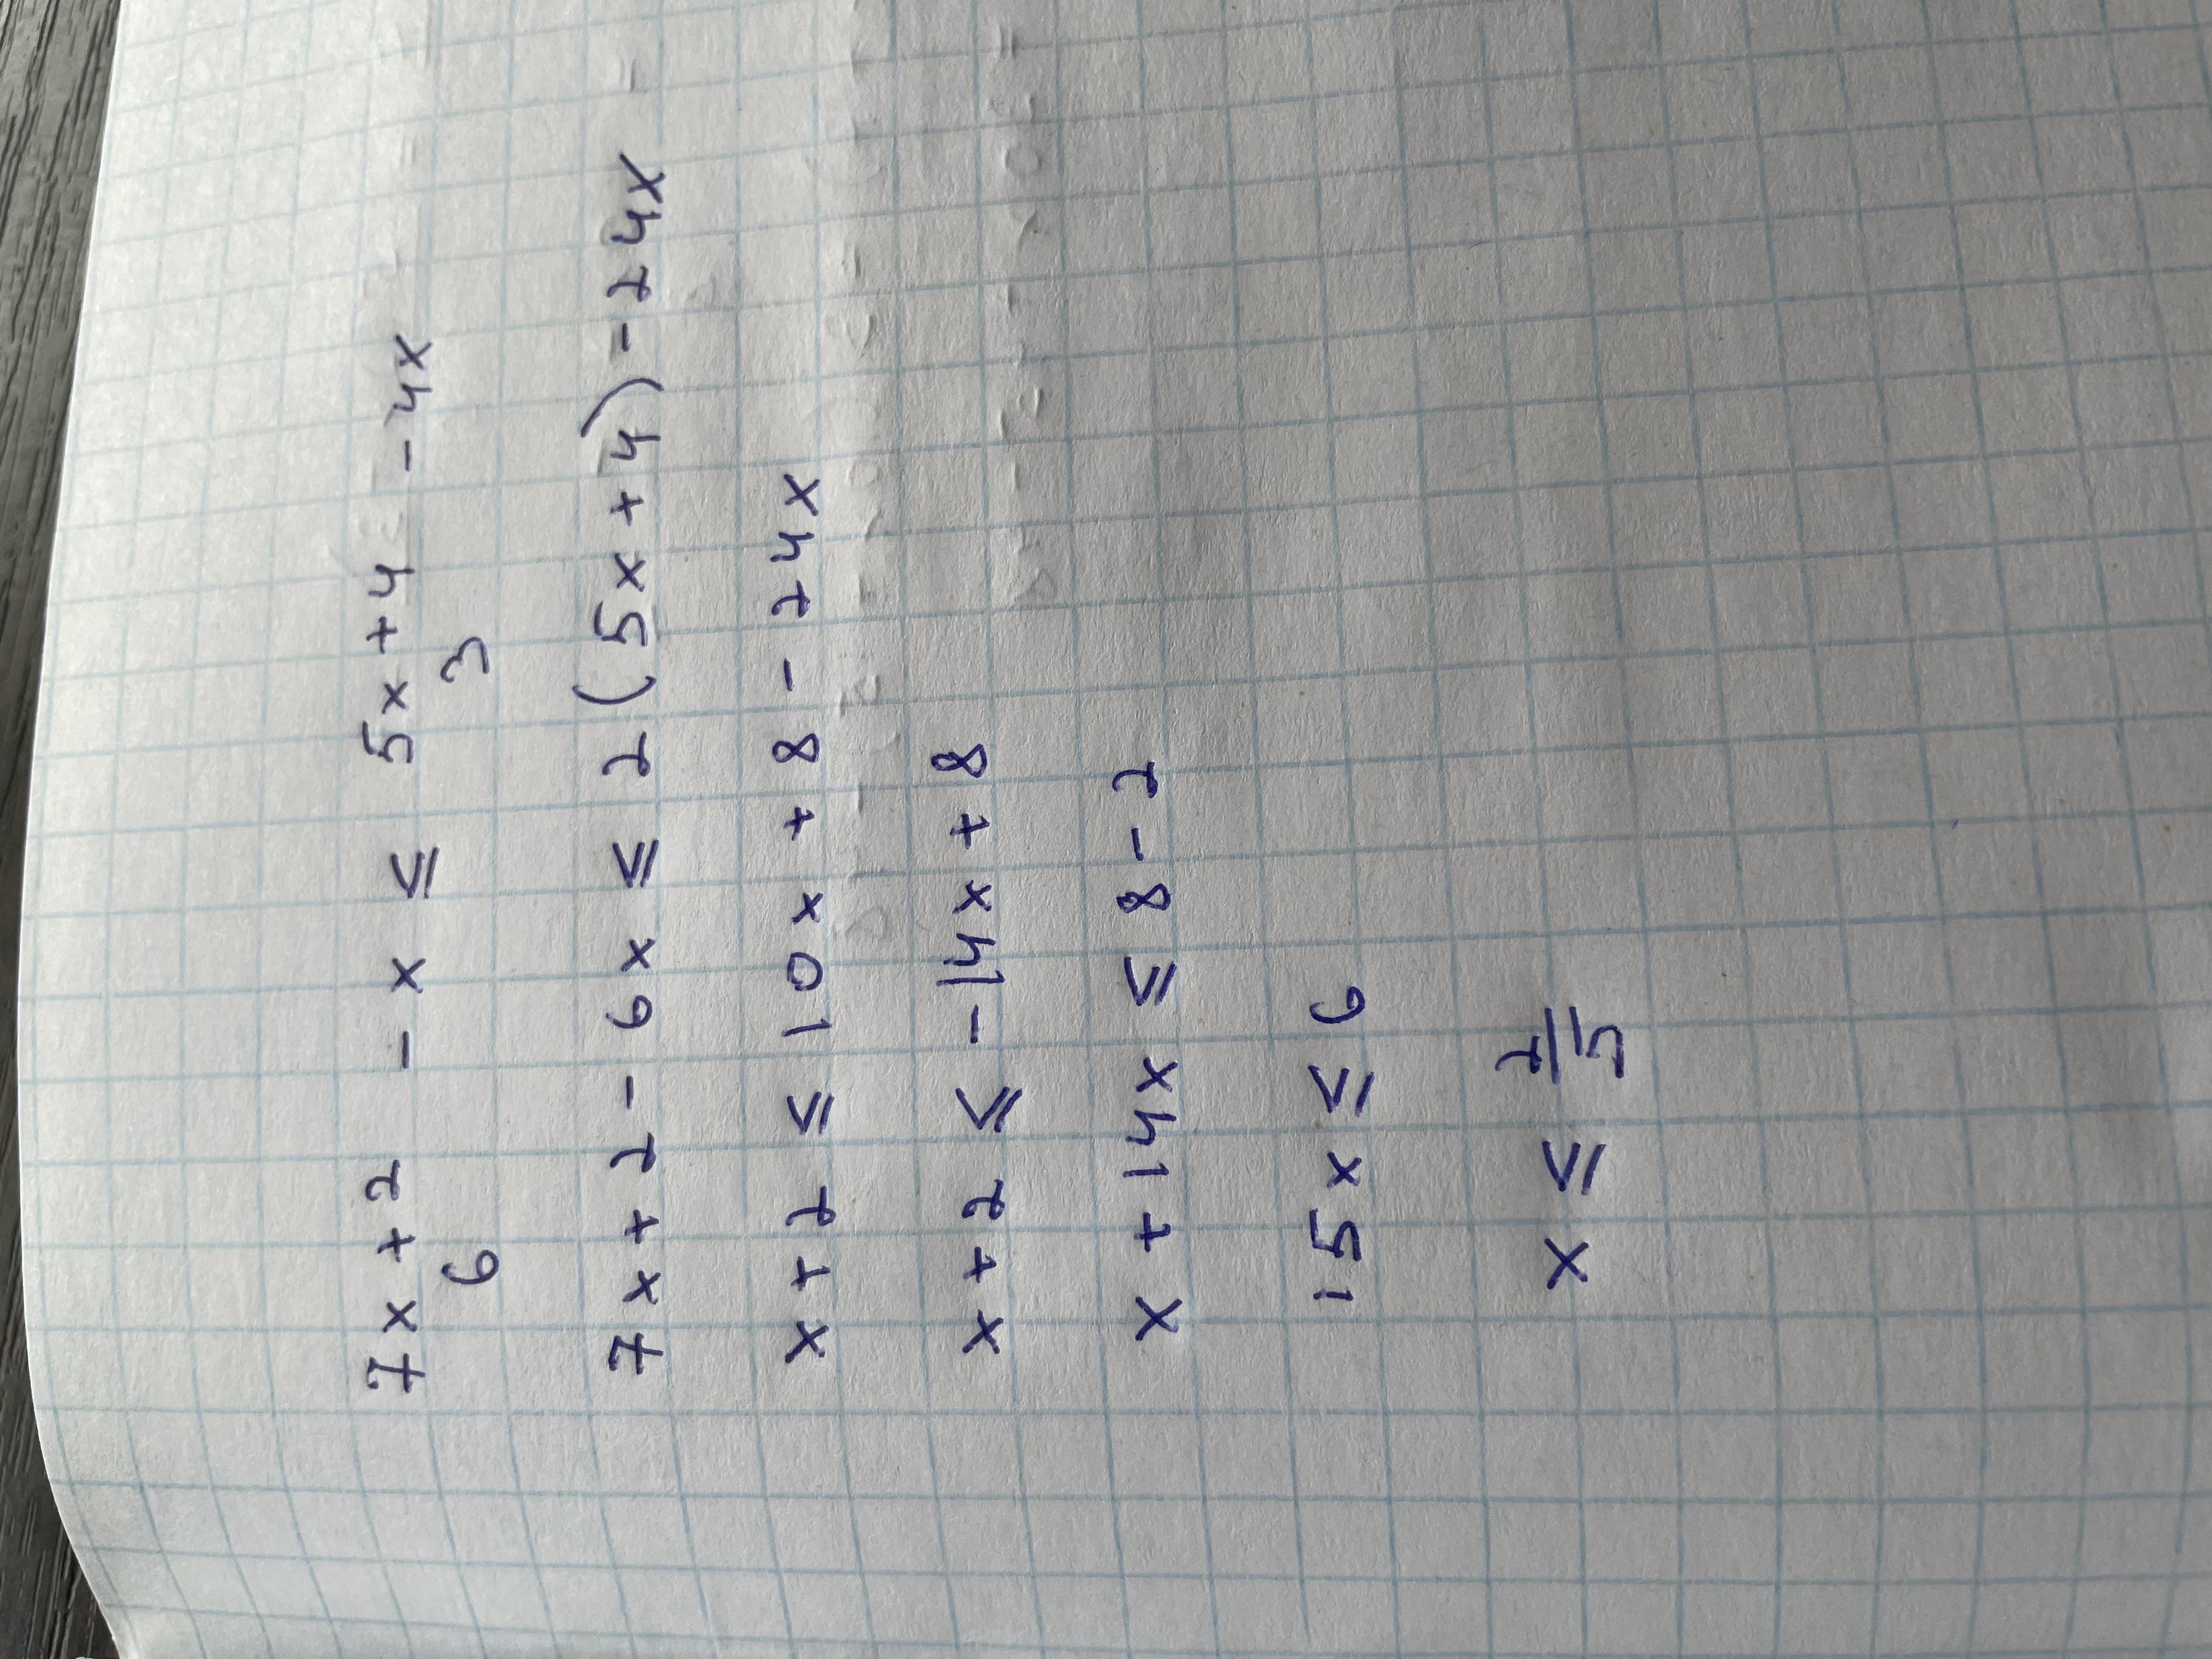 7x+2 - x ≤ 5x+4 - 4x
6 3
7x+2-6x ≤ 2(5x+4)-24x
x+2 ≤ 10x+8-24x
x+2 ≤ -14x+8
x+14x ≤ 8-2
15x ≤ 6
x ≤ 2/5